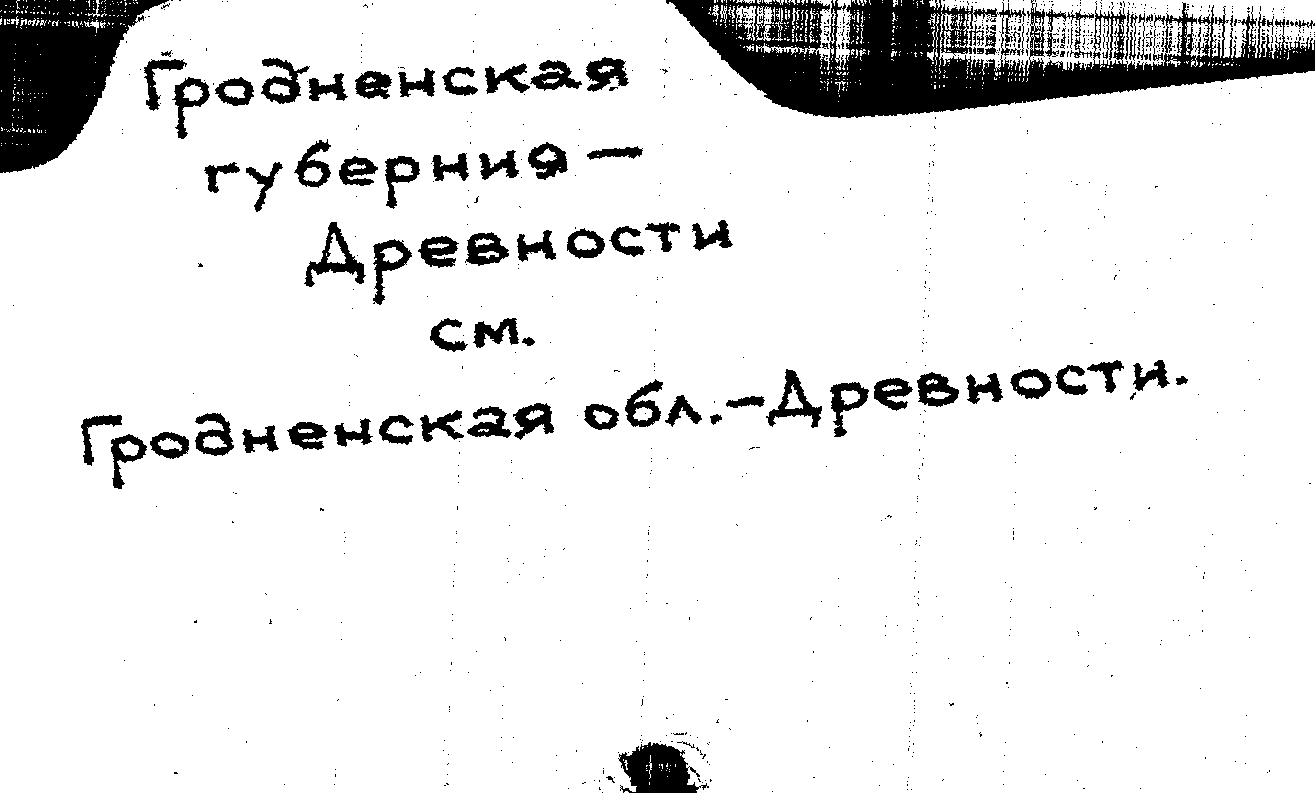 Гродненская
губерния —
Древности
см.
Гродненская обл.-Древности.